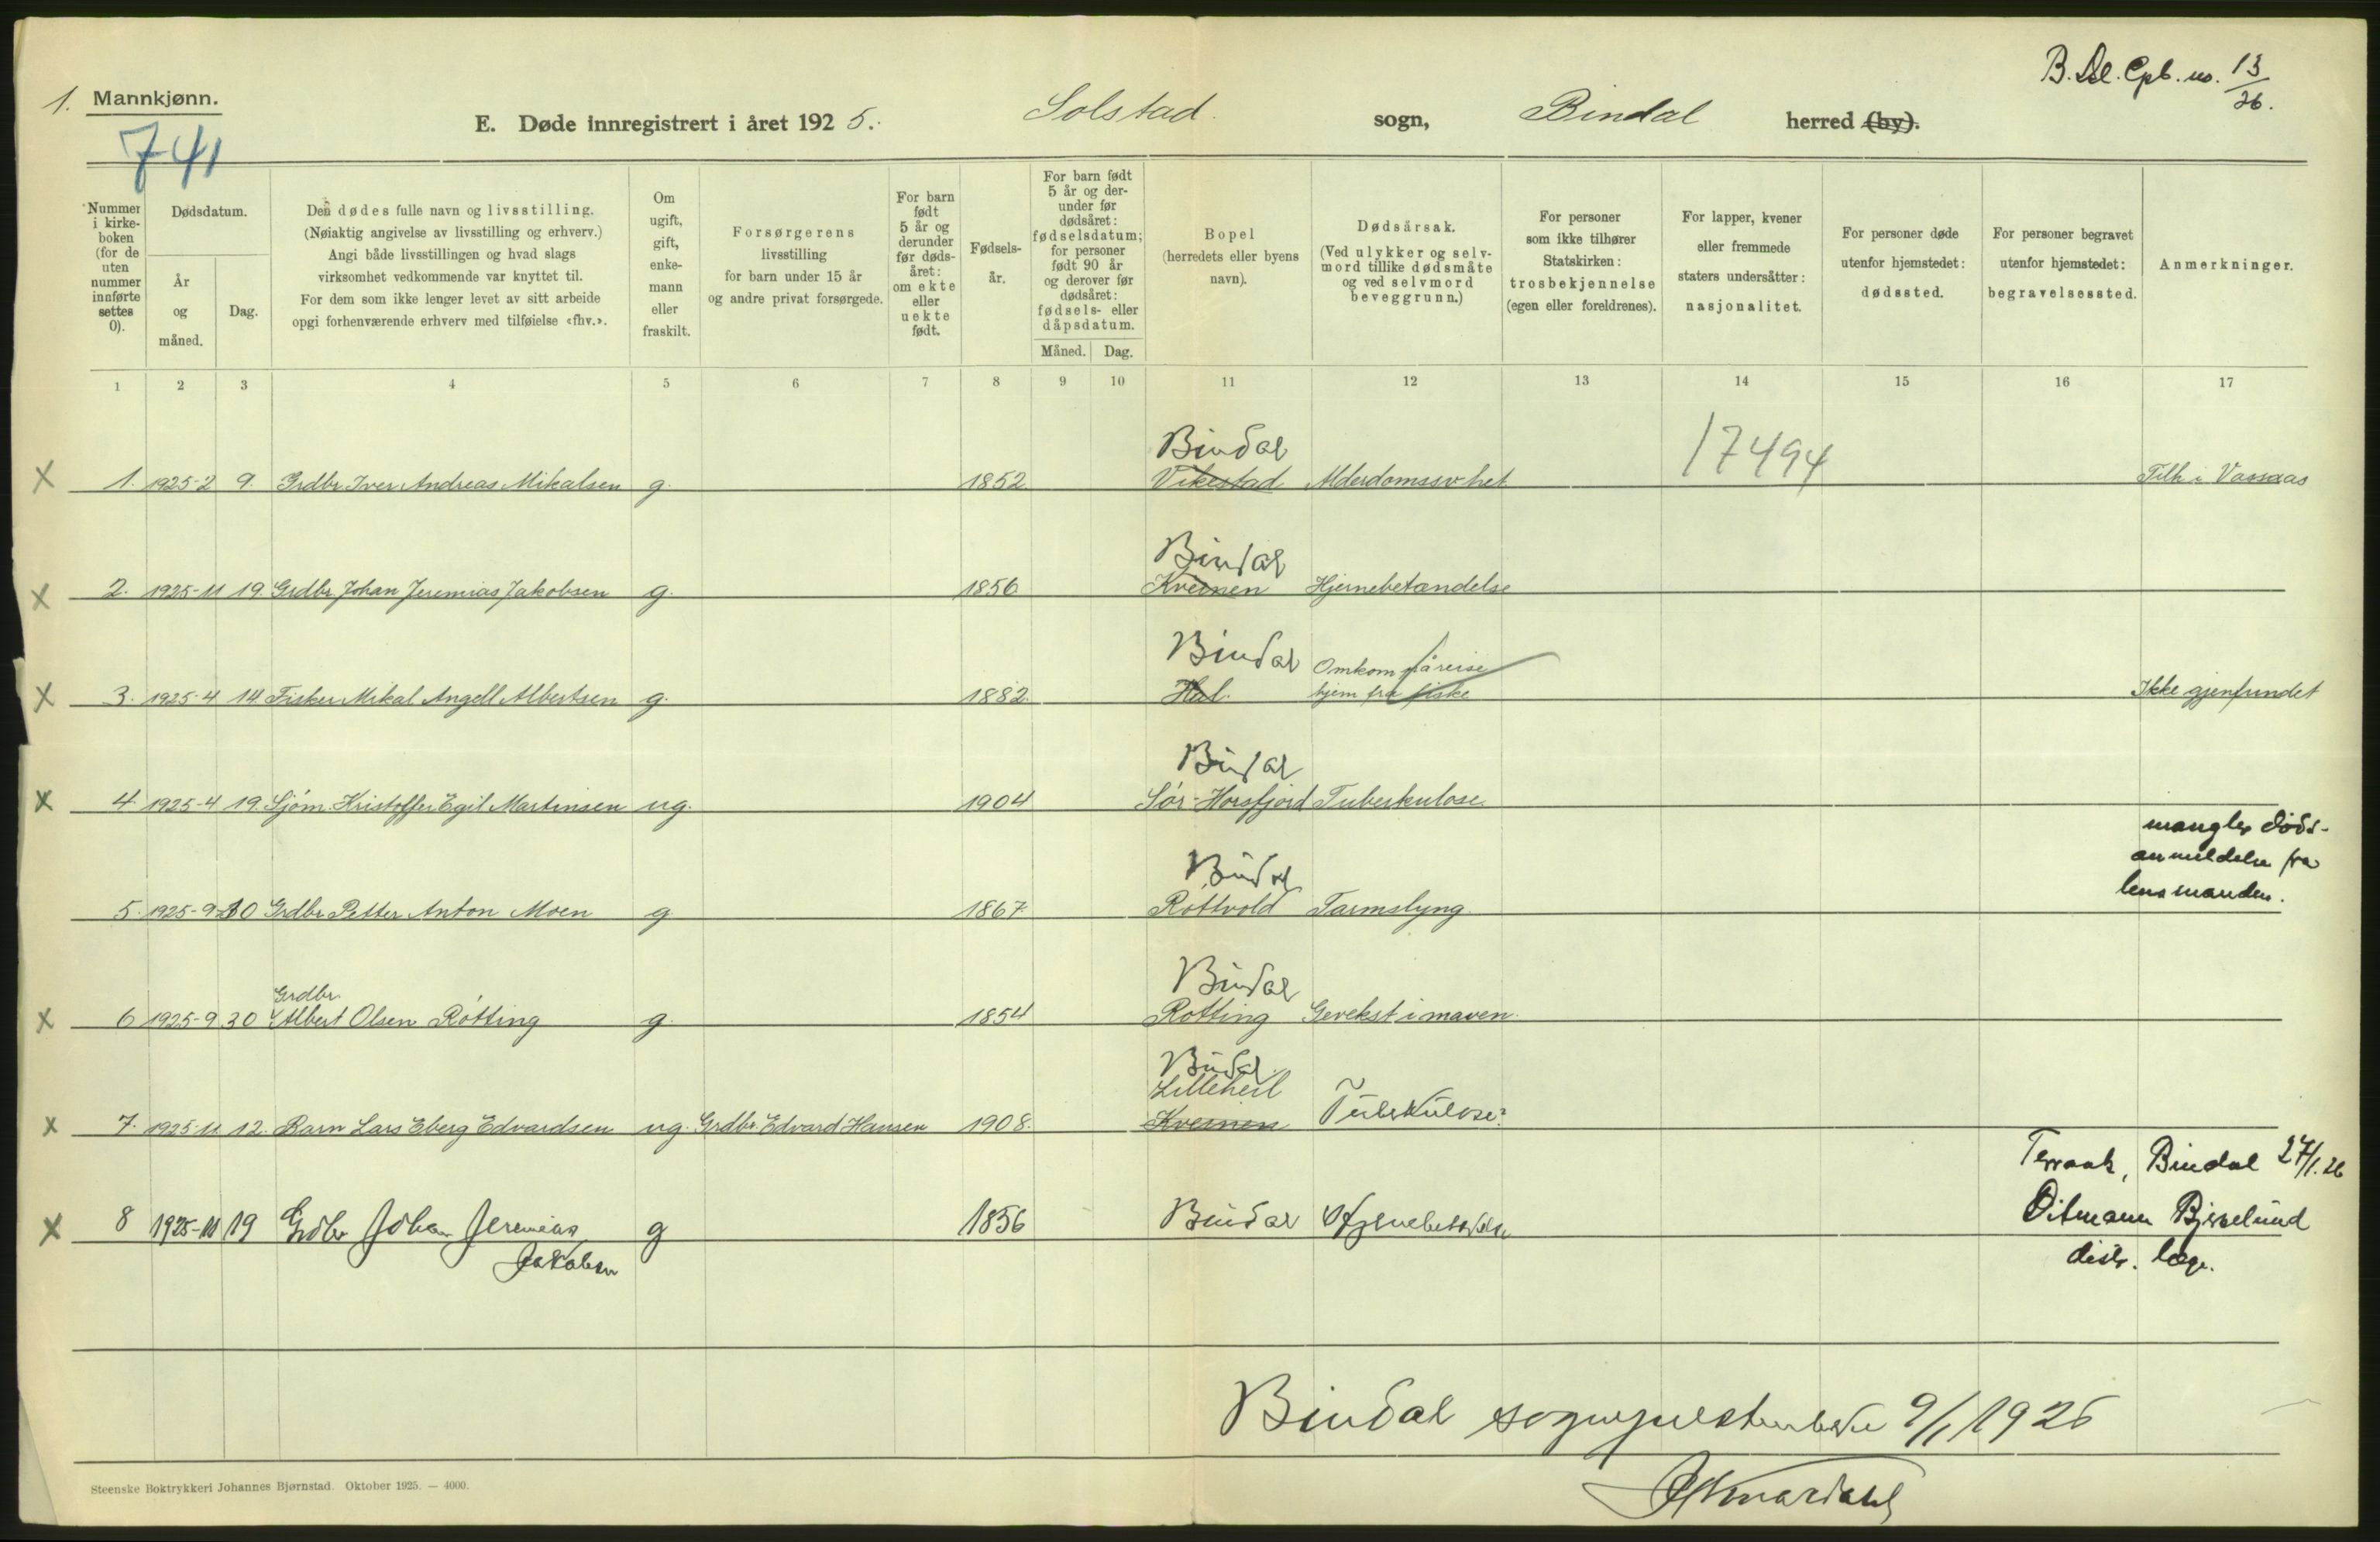 B. Dl. Cpb. no. 13/26.
1. Mannkjønn.
E. Døde innregistrert i året 1925. Solstad sogn, Bindal herred (by).
741
Nummer i kirke- boken (for de uten nummer innførte settes 0).
Dødsdatum.
År og måned.
Dag.
Den dødes fulle navn og livsstilling.
(Nøiaktig angivelse av livsstilling og erhverv.)
Angi både livsstillingen og hvad slags
virksomhet vedkommende var knyttet til.
For dem som ikke lenger levet av sitt arbeide
opgi forhenværende erhverv med tilføielse «fhv.».
Om ugift, gift, enke- mann eller fraskilt.
Forsørgerens
livsstilling
for barn under 15 år
og andre privat forsørgede.
For barn født 5 år og derunder før døds- året: om ekte eller uekte født.
Fødsels- år.
For barn født 5 år og der- under før dødsåret: fødselsdatum; for personer født 90 år og derover før dødsåret: fødsels- eller dåpsdatum.
Måned. Dag.
Bopel
(herredets eller byens
navn).
Dødsårsak.
(Ved ulykker og selv-
mord tillike dødsmåte
og ved selvmord
beveggrunn.)
For personer
som ikke tilhører
Statskirken:
trosbekjennelse
(egen eller foreldrenes).
For lapper, kvener
eller fremmede
staters undersåtter:
nasjonalitet.
For personer døde
utenfor hjemstedet:
dødssted.
For personer begravet
utenfor hjemstedet:
begravelsessted.
Anmerkninger.
1 2 3 4 5 6 7 8 9 10 11 12 13 14 15 16 17
Bindal 17494
X 1. 1925-2 9. Grdbr Iver Andreas Mikalsen g. 1852 Vikestad Alderdomssvhet Tilh i Vassaas
Bindal
X 2. 1925-11 19. Grdbr Johan Jeremias Jakobsen g. 1856 Kveinen Hjernebetændelse
Bindal Omkom på reise
X 3. 1925-4 14. Fisker Mikal Angell Albertsen g. 1882. Hal. hjem fra fiske Ikke gjenfundet
Bindal
X 4. 1925-4 19. Sjøm. Kristoffer Egil Martinsen ug. 1904 Sør-Horsfjord Tuberkulose.
mangler døds-
anmeldelse fra
lensmanden.
Bindal
5. 1925-9 30 Grdbr Petter Anton Moen g 1867 Røttvold Tarmslyng.
Bindal
Grdbr.
X 6 1925-9 30 Albert Olsen Røtting g. 1854 Røtting Gevekst i maven.
Bindal.
Lilleheil
X 7. 1925-11. 12. Barn Lars Eberg Edvardsen ug. Grdbr. Edvard Hansen 1908. Kveinen Tuberkulose?
Terraak, Bindal 27/1.26
X 8 1925-11 19 Grdbr Johan Jeremias g 1856 Bindal Hjernebetændelse
Jakobsen
Ditmann Bjerkelund
distr. læge.
Bindal sogneprestembede 9/1 1926
Steenske Boktrykkeri Johannes Bjørnstad. Oktober 1925. — 4000.